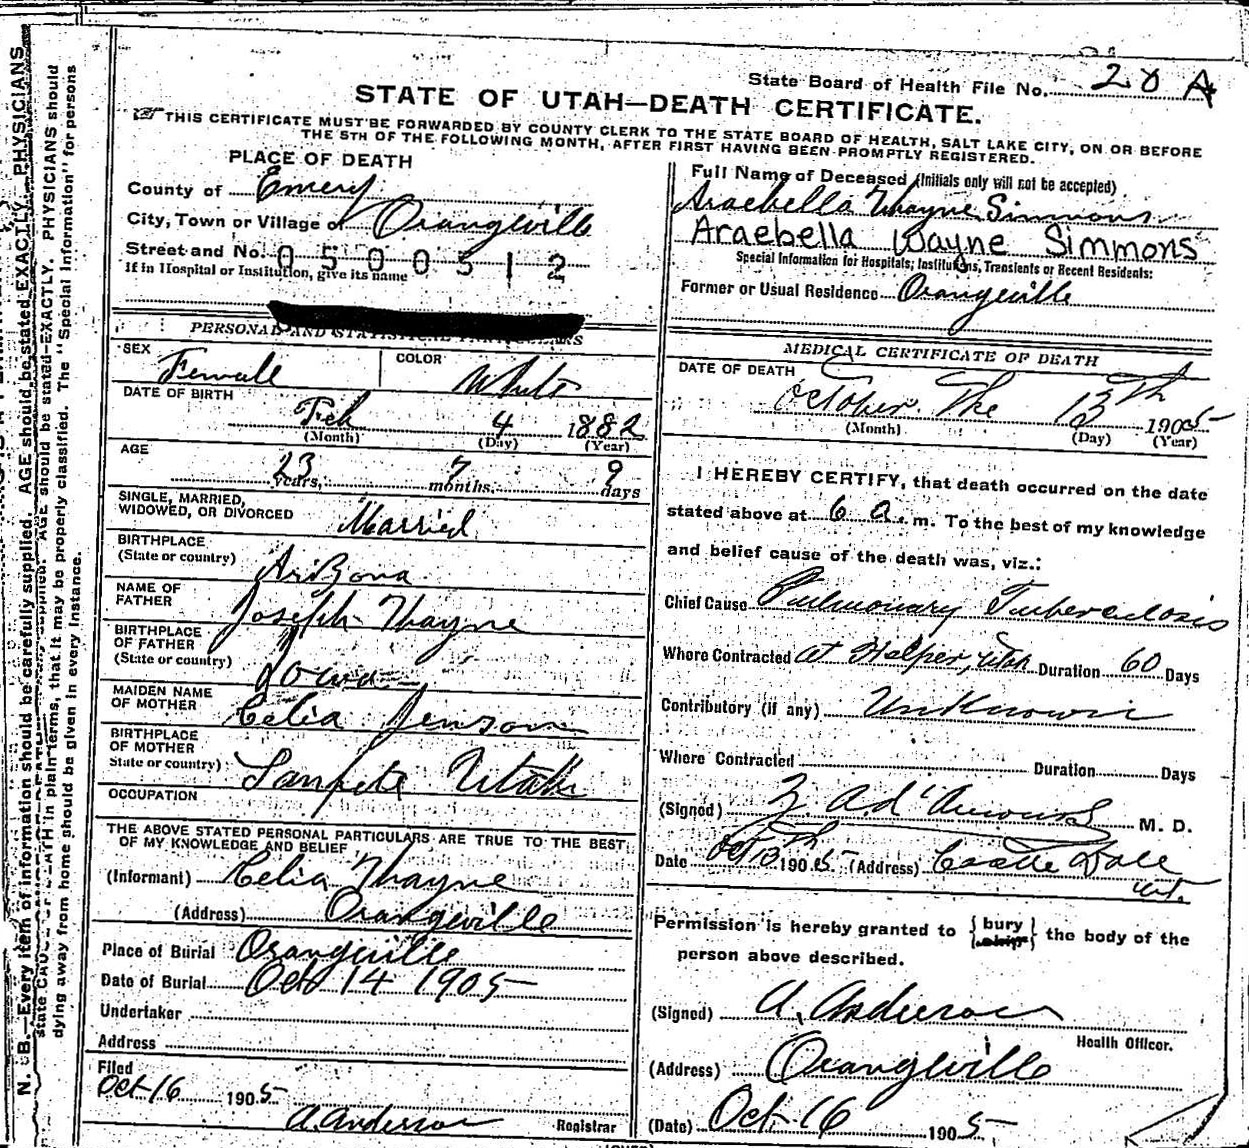 State Board of Health File No. 20 A
STATE OF UTAH—DEATH CERTIFICATE.
THIS CERTIFICATE MUST BE FORWARDED BY COUNTY CLERK TO THE STATE BOARD OF HEALTH, SALT LAKE CITY, ON OR BEFORE
THE 5TH OF THE FOLLOWING MONTH, AFTER FIRST HAVING BEEN PROMPTLY REGISTERED.
PLACE OF DEATH
County of Emery
City, Town or Village of Orangeville
Street and No. 0500512
If in Hospital or Institution, give its name
PERSONAL AND STATISTICAL PARTICULARS
SEX Female COLOR White
DATE OF BIRTH
Feb 4 1882
(Month) (Day) (Year)
AGE
23 years, 7 months, 9 days
SINGLE, MARRIED,
WIDOWED, OR DIVORCED Married
BIRTHPLACE
(State or country) Arizona
NAME OF
FATHER Joseph Thayne
BIRTHPLACE
OF FATHER
(State or country) Iowa
MAIDEN NAME
OF MOTHER Celia Jenson
BIRTHPLACE
OF MOTHER
State or country) Sanpete Utah
OCCUPATION
THE ABOVE STATED PERSONAL PARTICULARS ARE TRUE TO THE BEST
OF MY KNOWLEDGE AND BELIEF
(Informant) Celia Thayne
(Address) Orangeville
Place of Burial Orangeville
Date of Burial Oct 14 1905
Undertaker
Address
Filed
Oct 16 1905
A. Anderson Registrar
Full Name of Deceased (Initials only will not be accepted)
Araebella Thayne Simmons
Araebella Wayne Simmons
Special Information for Hospitals, Institutions, Transients or Recent Residents:
Former or Usual Residence Orangeville
MEDICAL CERTIFICATE OF DEATH
DATE OF DEATH
October The 13th 1905
(Month) (Day) (Year)
I HEREBY CERTIFY, that death occurred on the date
stated above at 6 a. m. To the best of my knowledge
and belief cause of the death was, viz.:
Chief Cause Pulmonary Tuberculosis
Where Contracted at Helper, Utah Duration 60 Days
Contributory (if any) Unknown
Where Contracted Duration Days
(Signed) M. D.
Date Oct 13th 1905 (Address) Castle Dale
Ut.
Permission is hereby granted to {bury
ship} the body of the
person above described.
(Signed) A. Anderson
Health Officer.
(Address) Orangeville
(Date) Oct. 16 1905
N. B.—Every item of information should be carefully supplied. AGE should be stated EXACTLY. PHYSICIANS
should be stated EXACTLY. PHYSICIANS should
state CAUSE OF DEATH in plain terms, that it may be properly classified. The "Special Information" for persons
dying away from home should be given in every instance.